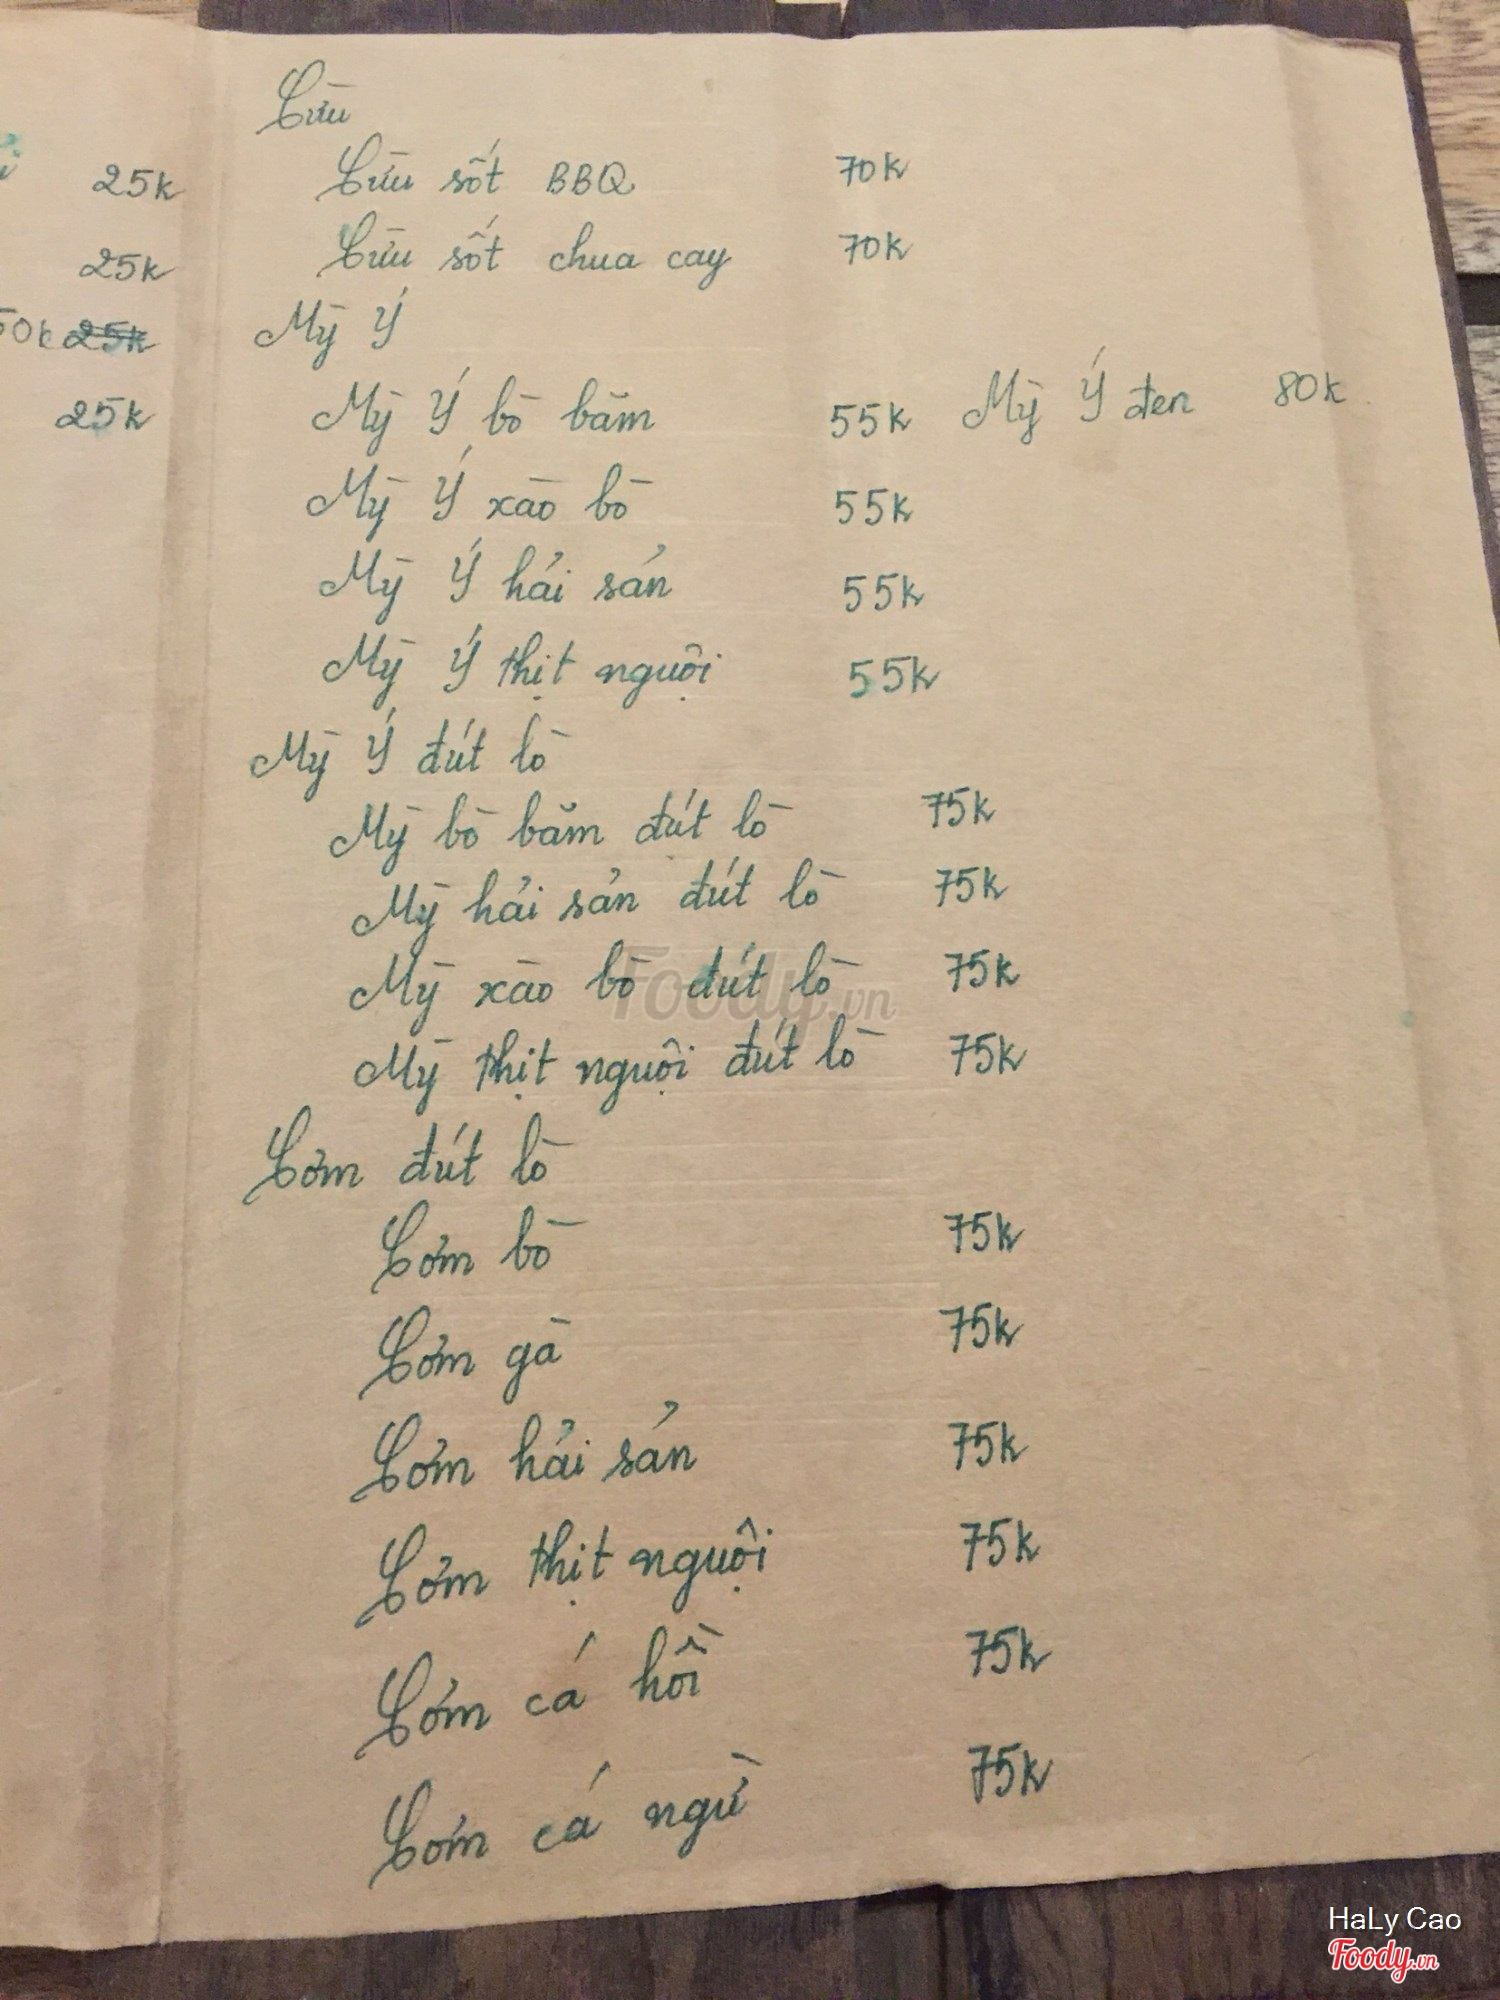 25k
25k
50k 25k
25k
Cừu
Cừu sốt BBQ 70k
Cừu sốt chua cay 70k
Mỳ Ý
Mỳ Ý bò băm 55k Mỳ Ý đen 80k
Mỳ Ý xào bò 55k
Mỳ Ý hải sản 55k
Mỳ Ý thịt nguội 55k
Mỳ Ý đút lò
Mỳ bò băm đút lò 75k
Mỳ hải sản đút lò 75k
Mỳ xào bò đút lò 75k
Mỳ thịt nguội đút lò 75k
Cơm đút lò
Cơm bò 75k
Cơm gà 75k
Cơm hải sản 75k
Cơm thịt nguội 75k
Cơm cá hồi 75k
Cơm cá ngừ 75k
Foody.vn
HaLy Cao
Foody.vn